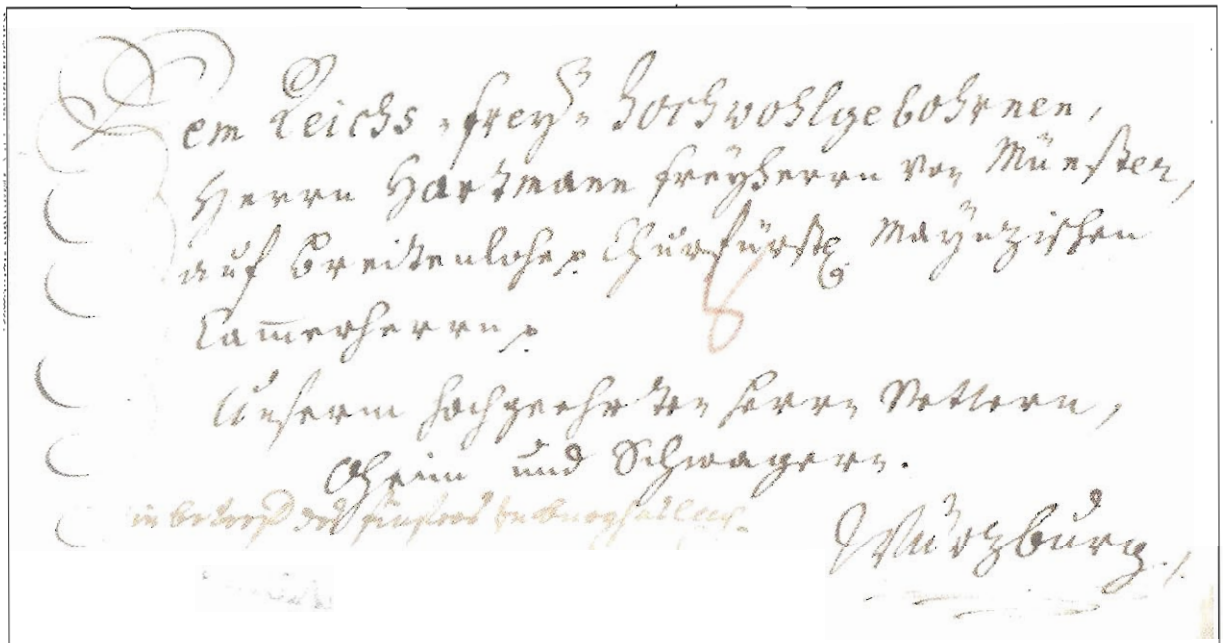 Dem Reichs-Frey-Hochwohlgebohrnen,
Herrn Hartmann Freÿherrn von Münster,
auf Breitenlohe, Churfürstl. Maÿnzischen
Cammerherrn,
Unserm hochgeehrten Herrn Vettern,
Oheim und Schwagern.
in betreff des
Würtzburg
8